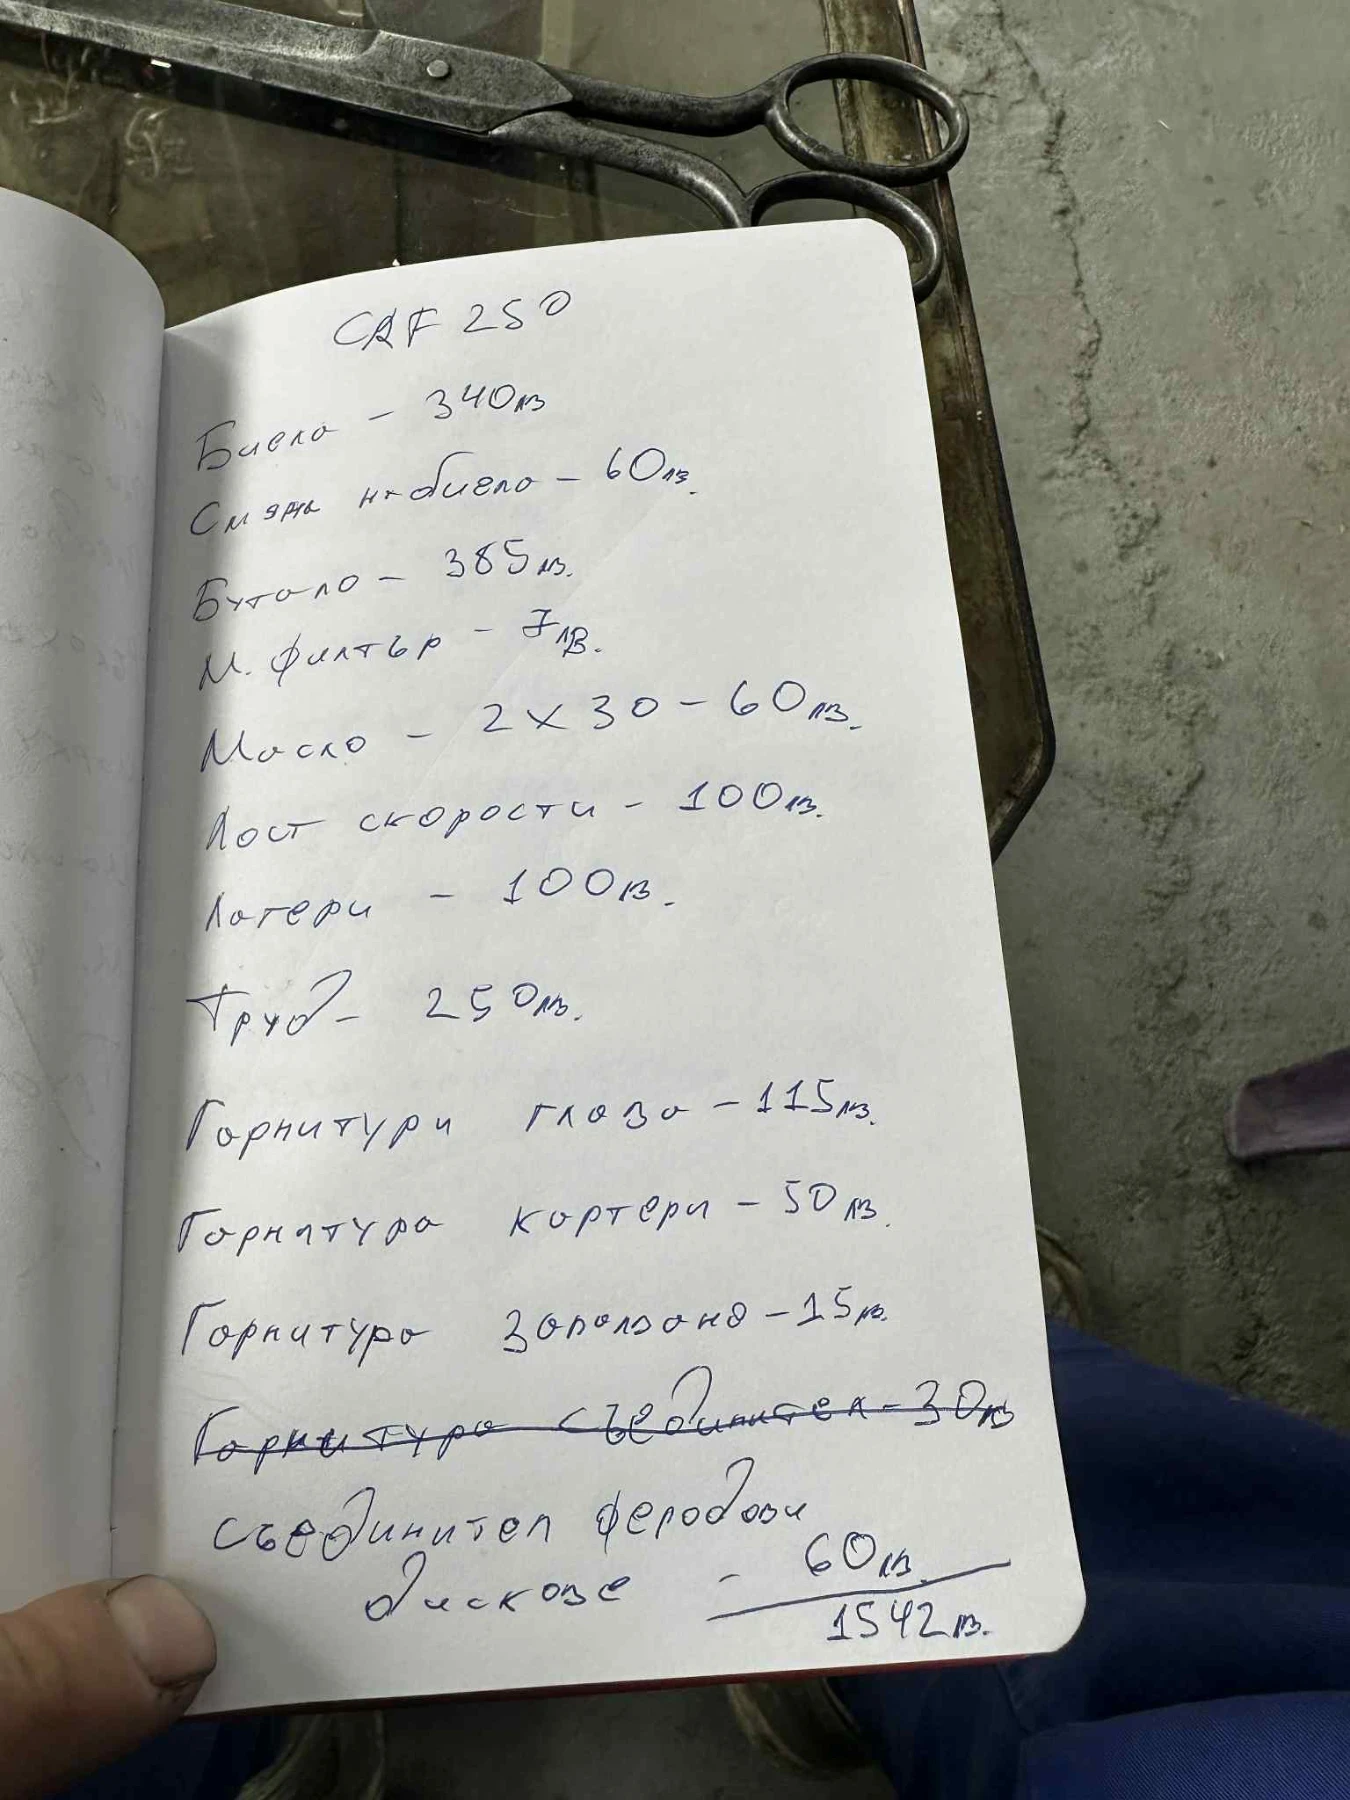 CRF 250
Биела - 340лв
Смяна на биела - 60лв.
Бутало - 385лв.
М. филтър - 7лв.
Масло - 2 x 30 - 60лв.
Лост скорости - 100лв.
Лагери - 100лв.
Труд - 250лв.
Гарнитури глава - 115лв.
Гарнитура картери - 50лв.
Гарнитура запалване - 15лв.
Гарнитура съединител - 30лв
съединител феродови
дискове - 60лв.
1542лв.